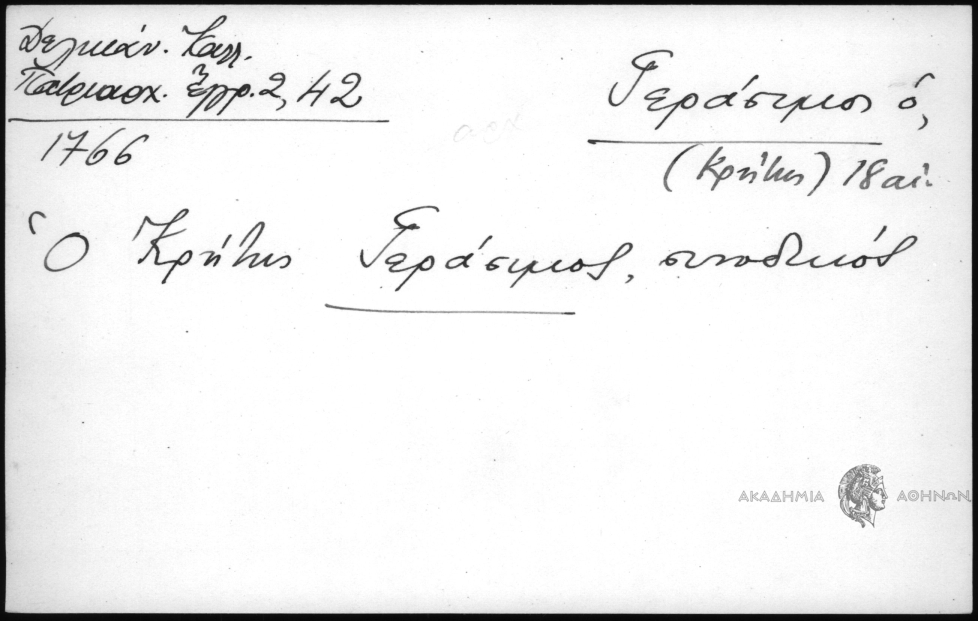 Δελικάν. Καλλ.
Πατριαρχ. Ἔγγρ. 2, 42
1766
Γεράσιμος ὁ,
(Κρήτης) 18 αἰ.
Ὁ Κρήτης Γεράσιμος, συνοδικός
ΑΚΑΔΗΜΙΑ ΑΘΗΝΩΝ